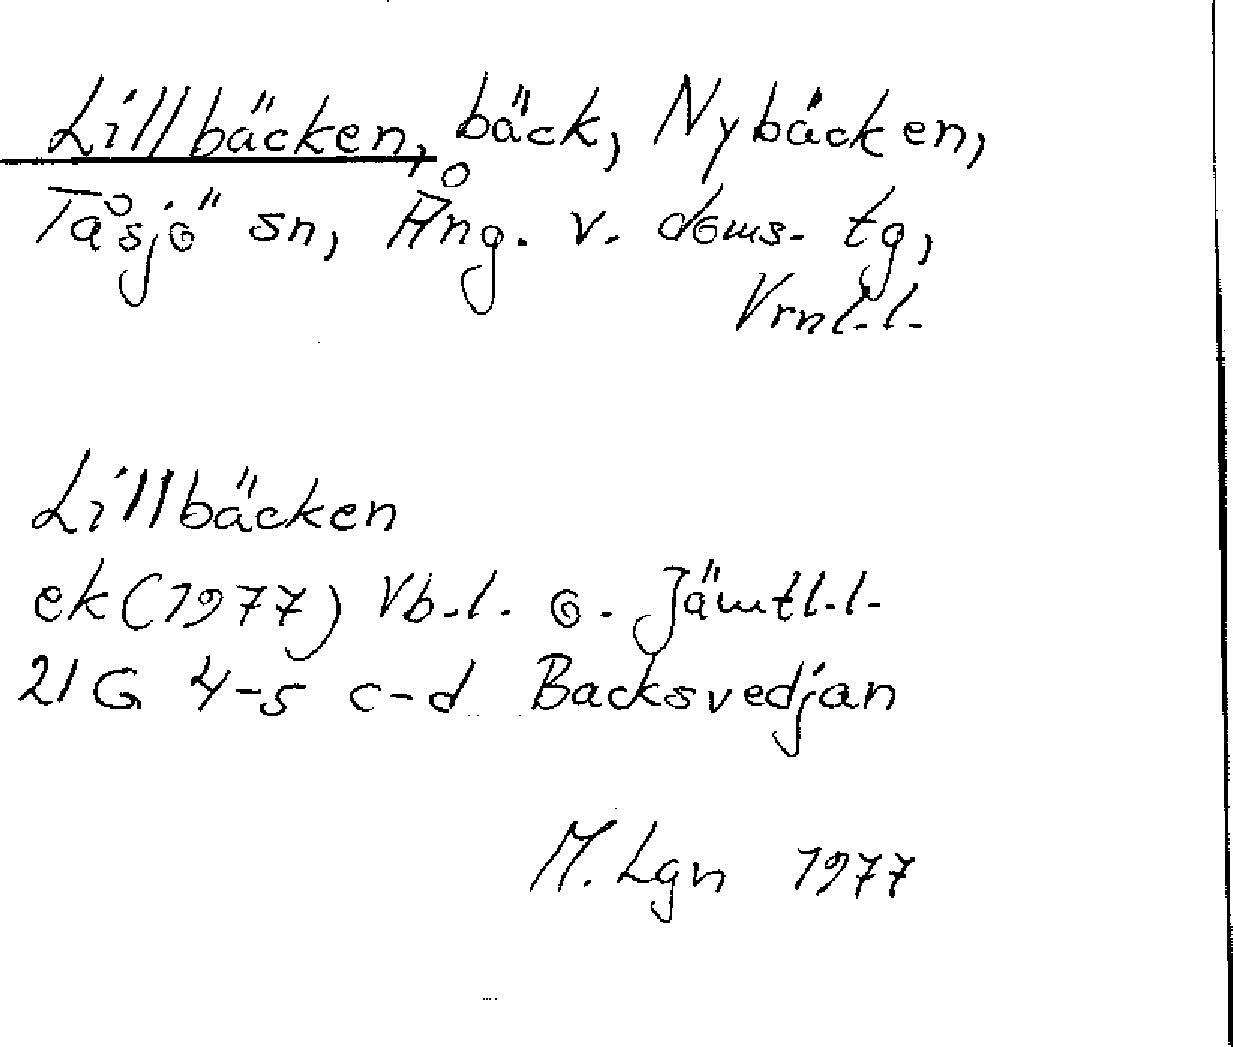 Lillbäcken, bäck, Nybäcken,
Tåsjö sn, Ång. v. doms. tg,
Vrnl.l.
Lillbäcken
ek (1977) Vb.l. o. Jämtl.l.
21 G 4-5 c-d Backsvedjan
M. Lgn 1977